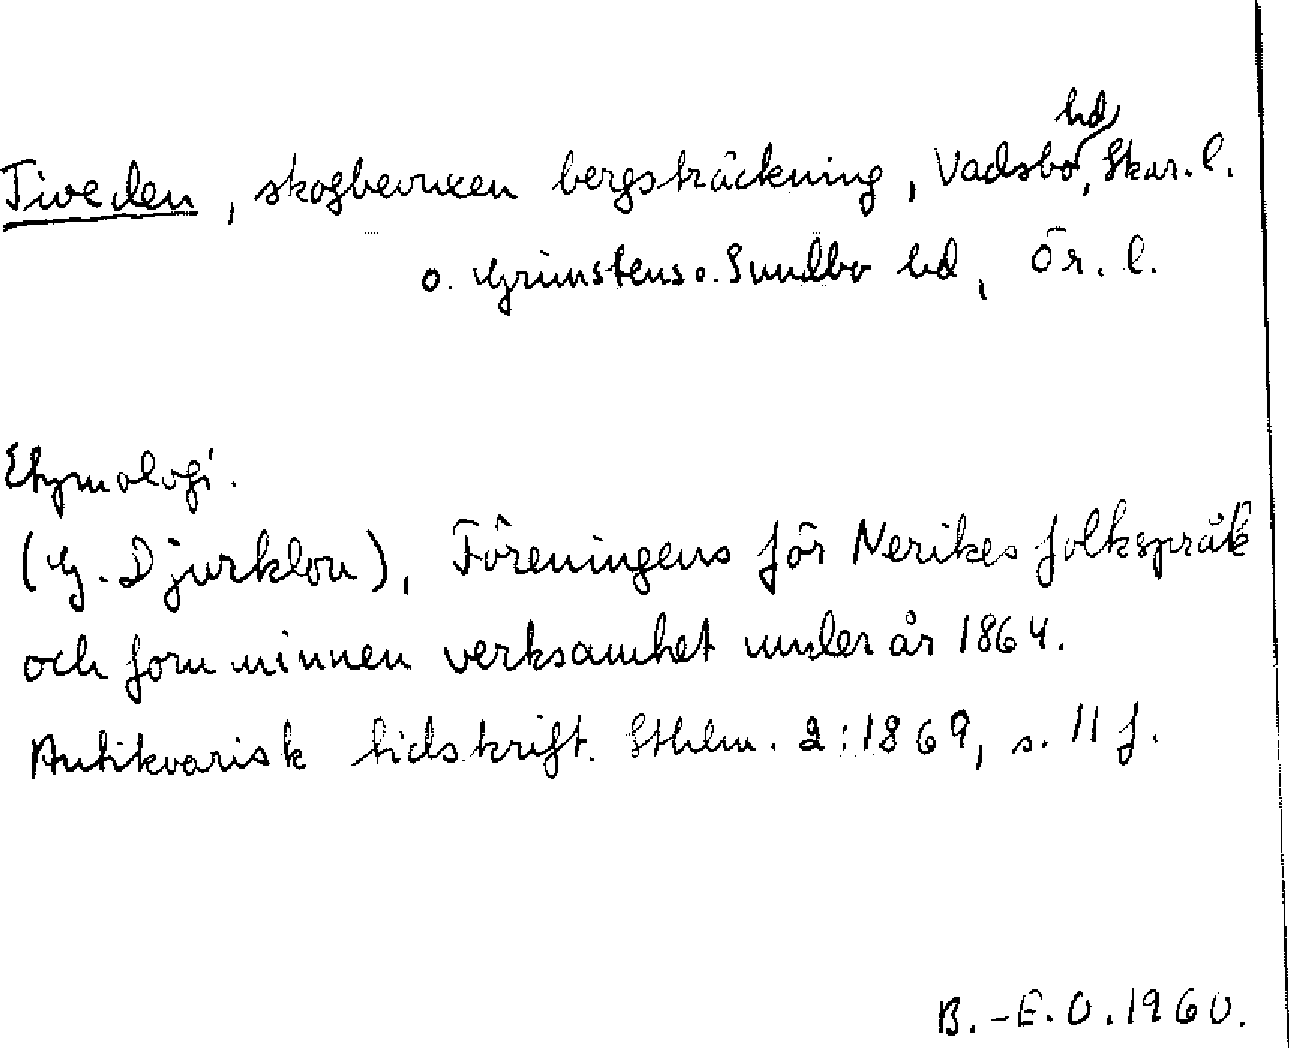 Tiveden, skogbevuxen bergsträckning, Vadsbo hd, Skar. l.
o. Grimstens o. Sundbo hd, Ör. l.
Etymologi.
(G. Djurklou), Föreningens för Nerikes folkspråk
och fornminnen verksamhet under år 1864.
Antikvarisk tidskrift. Sthlm. 2:1869, s. 11 f.
B.-E.O.1960.